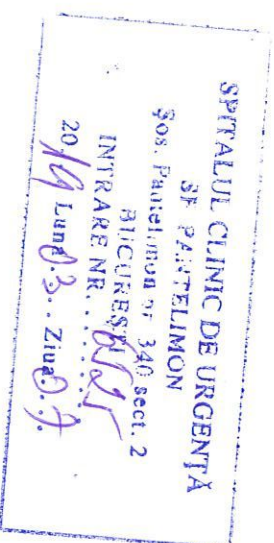 SPITALUL CLINIC DE URGENȚĂ
SF PANTELIMON
Șos. Pantelimon nr 340 sect. 2
BUCUREȘTI
INTRARE NR. . . . . .
2019 Luna 03 . . Ziua 07 .